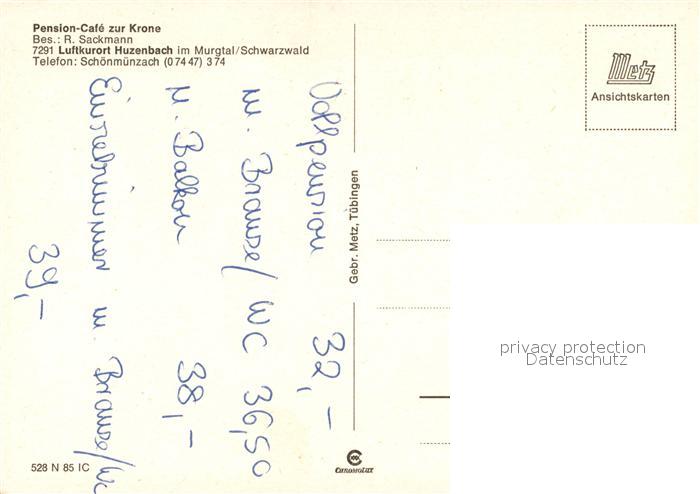 Pension-Café zur Krone
Bes.: R. Sackmann
7291 Luftkurort Huzenbach im Murgtal/Schwarzwald
Telefon: Schönmünzach (0 74 47) 3 74
Vollpension 32,-
m. Brause/WC 36,50
m. Balkon 38,-
Einzelzimmer m. Brause/WC
39,-
528 N 85 IC
Gebr. Metz, Tübingen
CHROMOLUX
Metz
Ansichtskarten
privacy protection
Datenschutz